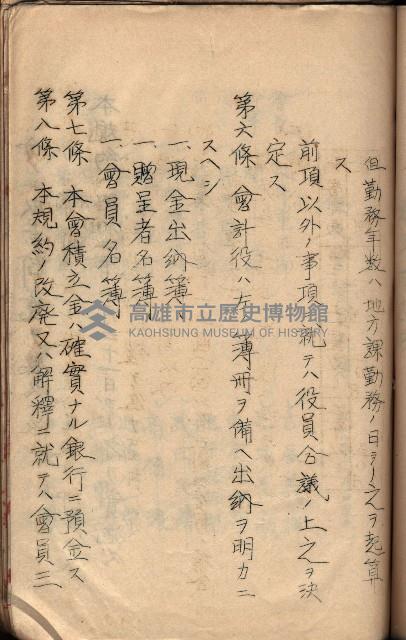 但勤務年数ハ地方課勤務ノ日ヨリ之ヲ起算
ス
前項以外ノ事項ニ就テハ役員合議ノ上之ヲ決
定ス
第六條 會計役ハ左ノ簿冊ヲ備ヘ出納ヲ明カニ
スヘシ
一、現金出納簿
一、贈呈者名簿
一、會員名簿
第七條 本會積立金ハ確實ナル銀行ニ預金ス
第八條 本規約ノ改廃又ハ解釋ニ就テハ會員三
高雄市立歷史博物館
KAOHSIUNG MUSEUM OF HISTORY